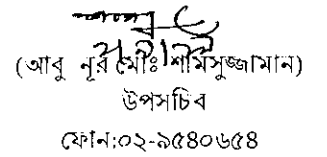 (আবু নূর মোঃ শামসুজ্জামান)
উপসচিব
ফোন:০২-৯৫৪০৬৫৪